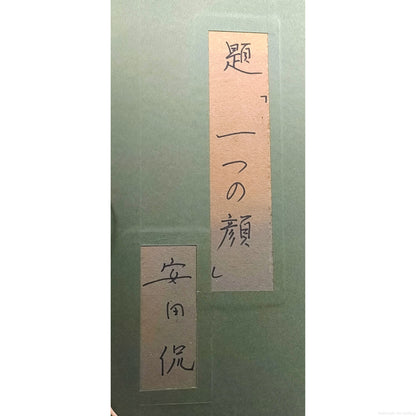 題「一つの顔」
安田侃